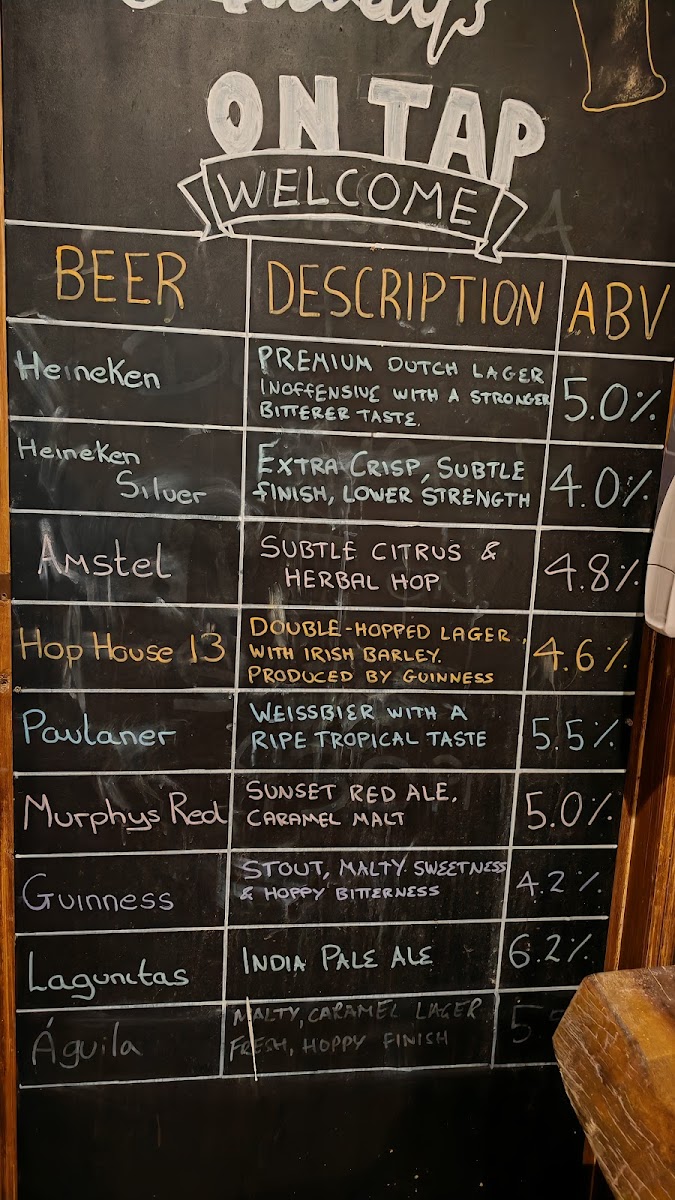 ON TAP
WELCOME
BEER DESCRIPTION ABV
Heineken
PREMIUM DUTCH LAGER
INOFFENSIVE WITH A STRONGER
BITTERER TASTE.
5.0%
Heineken
Silver
EXTRA CRISP, SUBTLE
FINISH, LOWER STRENGTH
4.0%
Amstel
SUBTLE CITRUS &
HERBAL HOP
4.8%
Hop House 13
DOUBLE-HOPPED LAGER
WITH IRISH BARLEY.
PRODUCED BY GUINNESS
4.6%
Paulaner
WEISSBIER WITH A
RIPE TROPICAL TASTE
5.5%
Murphys Red
SUNSET RED ALE,
CARAMEL MALT
5.0%
Guinness
STOUT, MALTY SWEETNESS
& HOPPY BITTERNESS
4.2%
Lagunitas
INDIA PALE ALE
6.2%
Águila
MALTY, CARAMEL LAGER
FRESH, HOPPY FINISH